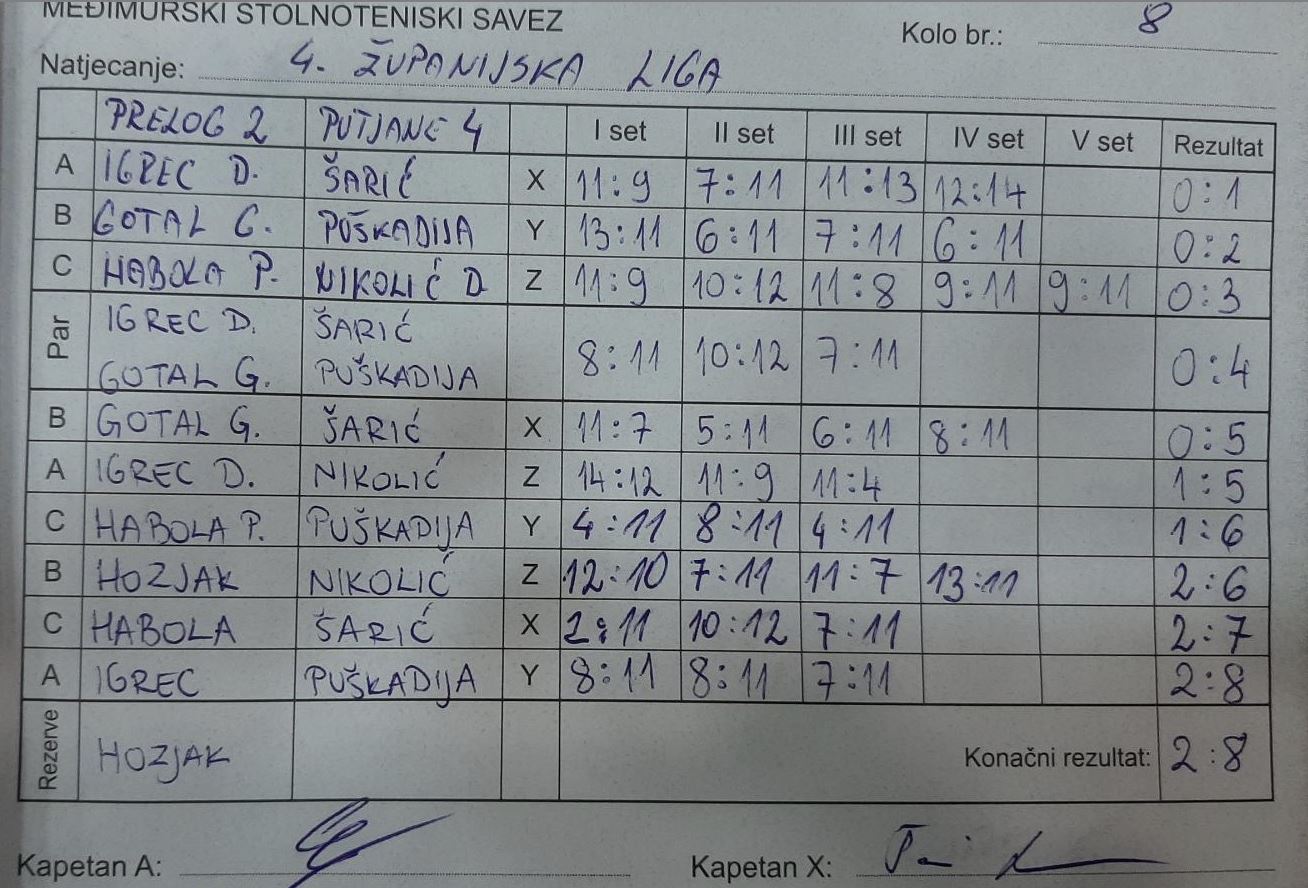 MEĐIMURSKI STOLNOTENISKI SAVEZ
Kolo br.: 8
Natjecanje: 4. ŽUPANIJSKA LIGA
PRELOG 2 PUTJANE 4 I set II set III set IV set V set Rezultat
A IGREC D. ŠARIĆ X 11:9 7:11 11:13 12:14 0:1
B GOTAL G. PUŠKADIJA Y 13:11 6:11 7:11 6:11 0:2
C HABOLA P. NIKOLIĆ D Z 11:9 10:12 11:8 9:11 9:11 0:3
Par IGREC D. ŠARIĆ
GOTAL G. PUŠKADIJA 8:11 10:12 7:11 0:4
B GOTAL G. ŠARIĆ X 11:7 5:11 6:11 8:11 0:5
A IGREC D. NIKOLIĆ Z 14:12 11:9 11:4 1:5
C HABOLA P. PUŠKADIJA Y 4:11 8:11 4:11 1:6
B HOZJAK NIKOLIĆ Z 12:10 7:11 11:7 13:11 2:6
C HABOLA ŠARIĆ X 2:11 10:12 7:11 2:7
A IGREC PUŠKADIJA Y 8:11 8:11 7:11 2:8
Rezerve HOZJAK Konačni rezultat: 2:8
Kapetan A: Kapetan X: